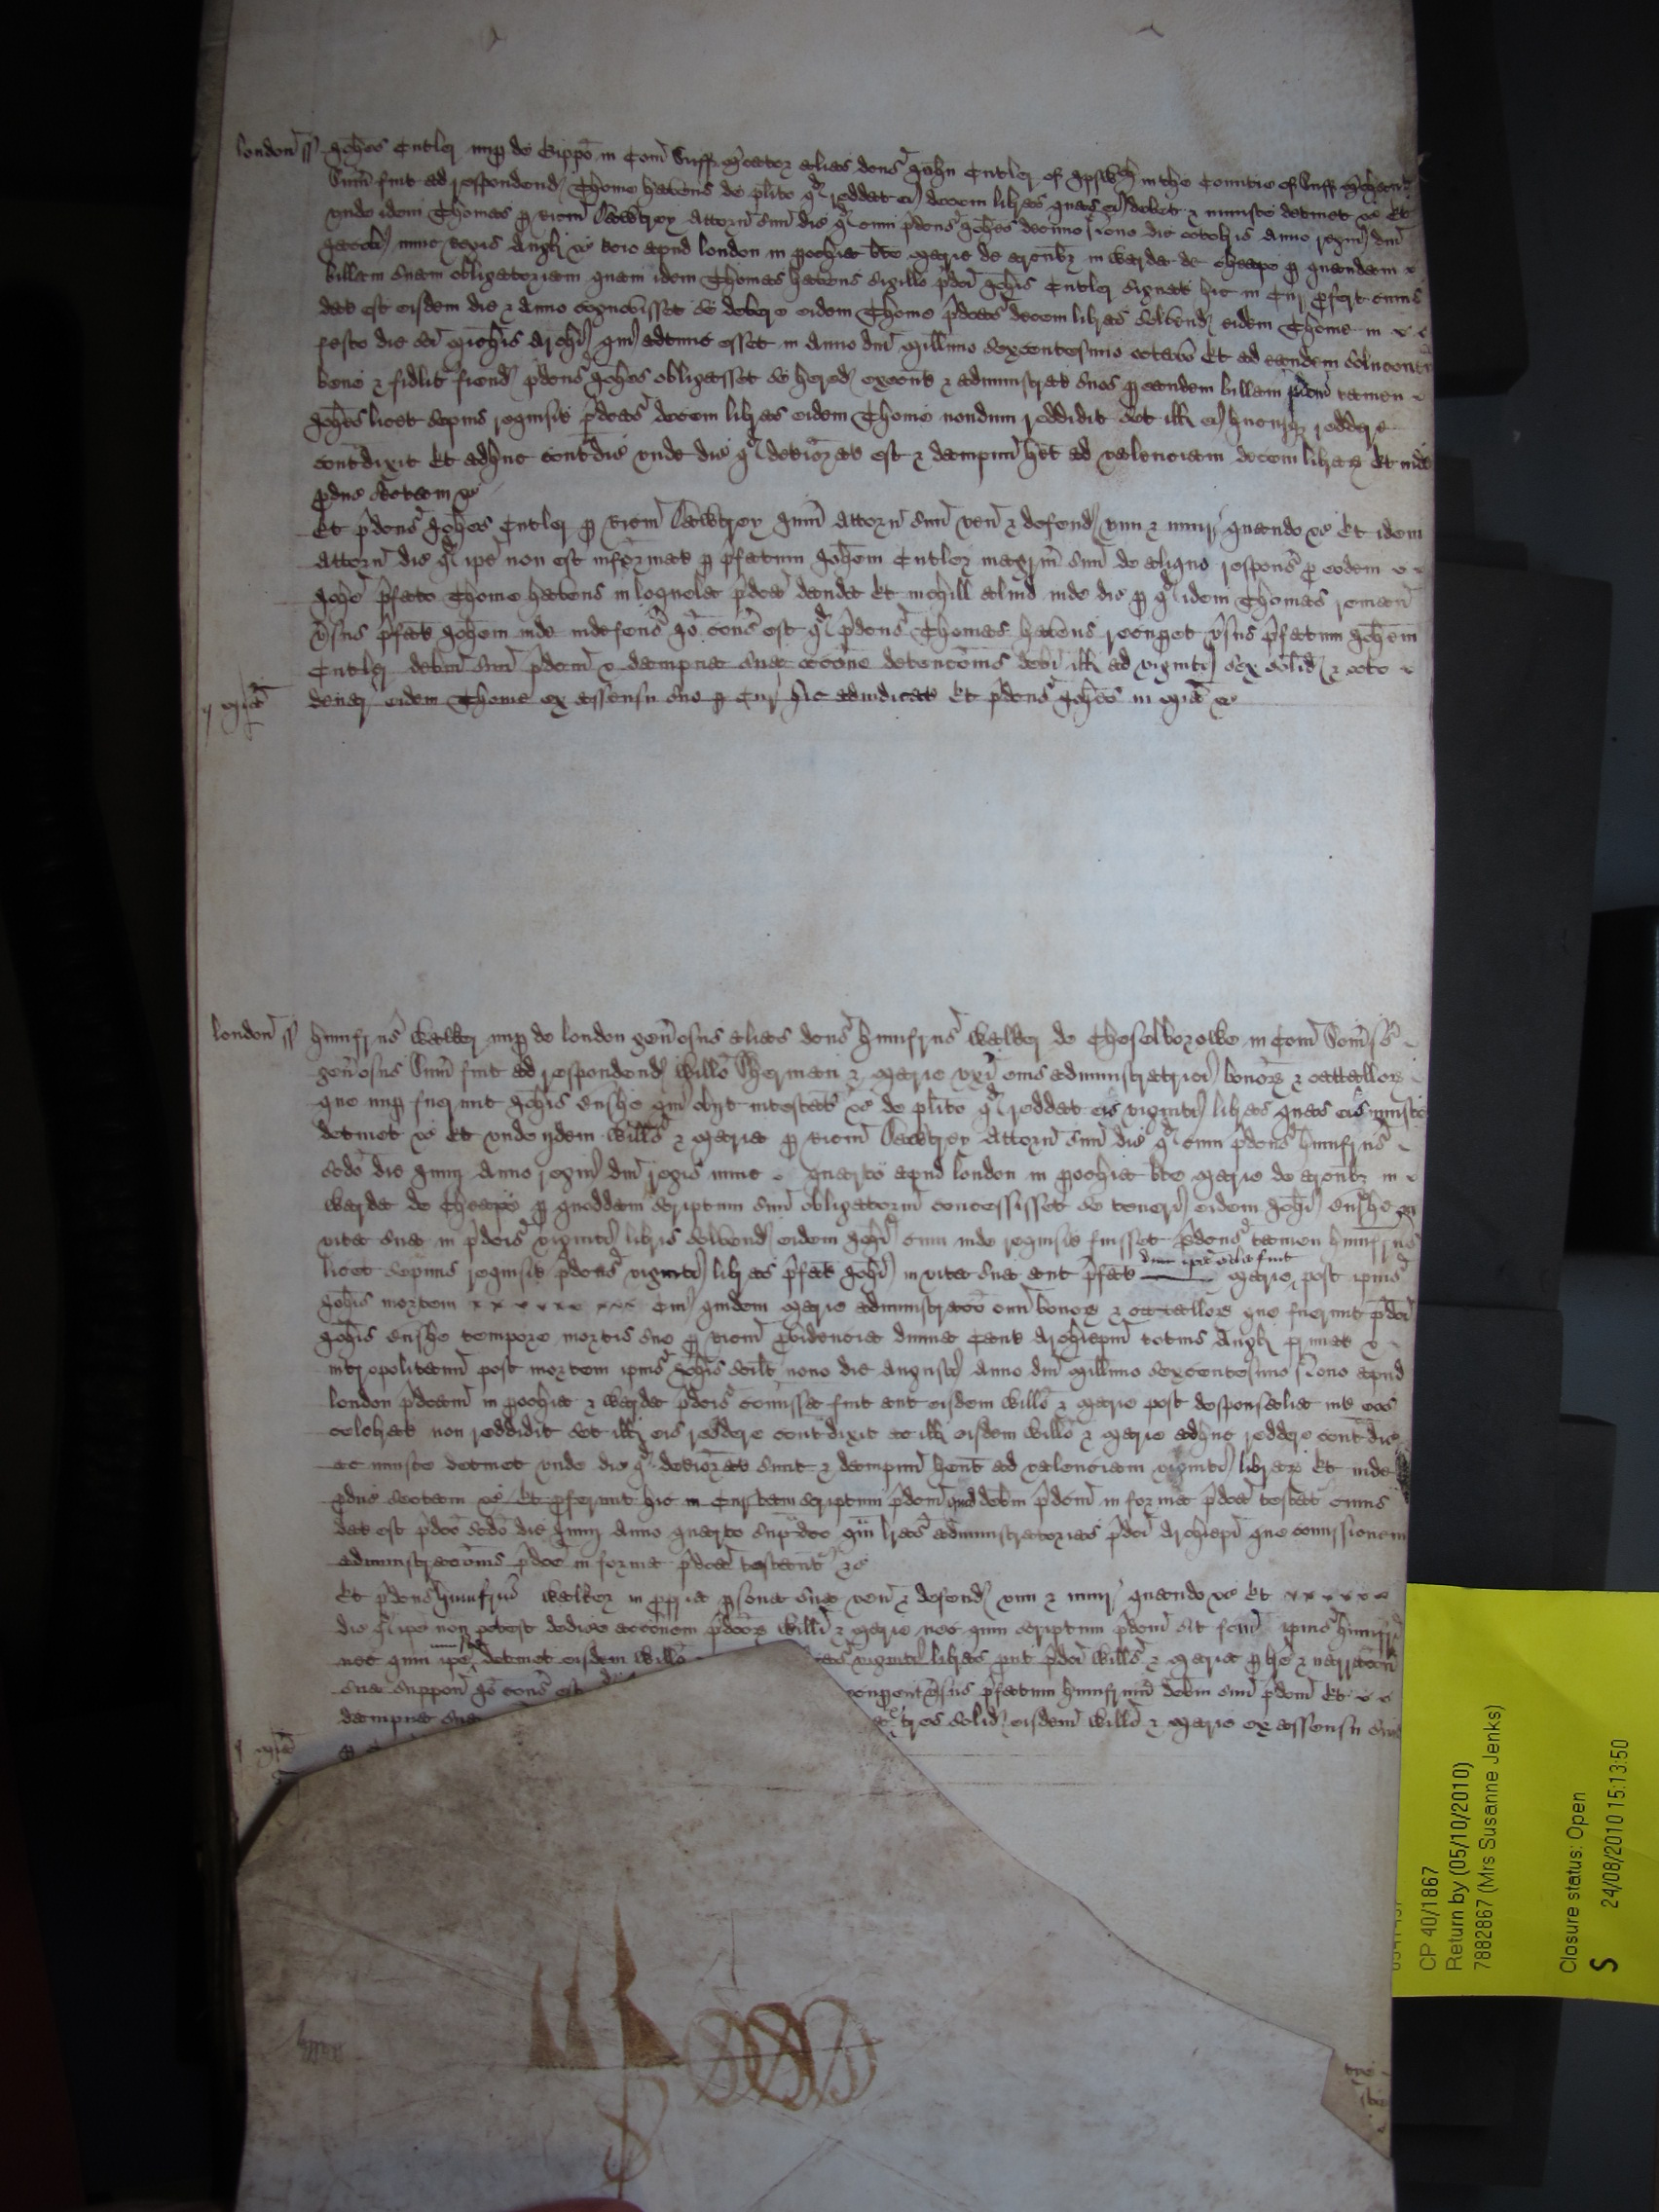 London ss Johes Cutler nup de Gippo in Com Suff mcator alias dcus John Cutler of Ipswch in the Countie of Suff mchant
Sum fuit ad respondend Thome havens de plito qd reddat ei decem libras quas ei debet & iniuste detinet &c Et
unde idem Thomas p Ricm Sawtrey Attorn suu dic qd cum pdcus Johes decimo nono die octobris Anno regni dni
Jacobi nunc Regis Angl &c apud london in pochia bte marie de arcubz in warda de cheape p quandam
billam suam obligatoriam quam idem Thomas havens sigillo pdci Johis Cutler signat hic in Cur pfert cuius
dat est eisdem die & Anno cognovisset se debere eidem Thome pdcas decem libras solvend eidem Thome in
festo die sci michis Archi qui adtunc esset in Anno dni millimo sexcentesimo octavo Et ad eandem soluconem
bene & fidlit fiend pdcus Johes obligasset se hered executs & administrat suos p eandem billam pdcus tamen
Johes licet sepius requisit pdcas decem libras eidem Thome nondum reddidit set ill ei hucusqz reddere
contdixit Et adhuc contdic unde dic qd deteriorat est & dampnu het ad valenciam decem librarz Et inde
pduc sectam &c
Et pdcus Johes Cutler p Ricm Sawtrey quum Attorn suu ven & defend vim & iniur quando &c Et idem
Attorn dic qd ipe non est informat p pfatum Johem Cutler magrm suu de aliquo respons p eodem
Johe pfato Thome havens in loquela pdca danda Et nichill aliud inde dic p qd idem Thomas reman
vsus pfat Johem inde indefens Io cons est qd pdcus Thomas havens recupet vsus pfatum Johem
Cutler debm suu pdcm & dampna sua occone detencois debi ill ad viginti sex solid & octo
denar eidem Thome ex assensu suo p Cur hic adiudicat Et pdcus Johes in mia &c
mia
London ss humfrus walker nup de london genosus alias dcus humfrus walker de Cheselborowe in Com Somss
genosus Sum fuit ad respondend Willo Sherman & marie uxi eius administratrici bonorz & catallorz
que nup fuerunt Johis qui obijt intestat &c de plito qd reddat eis viginti libras quas eis iniuste
detinet &c Et unde ijdem Wills & maria p Ricm Sawtrey Attorn suu dic qd cum pdcus humfrus
scdo die Junij Anno regni dni regis nunc quarto apud london in pochia bte marie de arcubz in
warda de Cheape p quoddam scriptum suu obligatoriu concessisset se teneri eidem Johi in
vita sua in pdcis viginti libris solvend eidem Johi cum inde requisit fuisset pdcus tamen humfrus
licet sepius requisit pdcas viginti libras pfat Johi in vita sua aut pfat dum ipa sola fuit marie post ipius
Johis mortem cui quidem marie administraco oniu bonorz & catallorz que fuerunt pdci
Johis tempore mortis sue p Ricm pvidencia divina Cant Archiepm totius Angl primat &
metropolitanu post mortem ipius Johis scilt nono die Augusti Anno dni millimo sexcentesimo nono apud
london pdcam in pochia & warda pdcis comissa fuit aut eisdem Willo & marie post desponsalia int eos
celebrat non reddidit set ill eis reddere contdixit ac ill eisdem Willo & marie adhuc reddere contdic
ac iniuste detinet unde dic qd deteriorat sunt & dampnu hent ad valenciam viginti librarz Et inde
pduc sectam &c Et pferunt hic in Cur tam scriptum pdcm quod debm pdcm in forma pdca testat cuius
dat est pdco scdo die Junij Anno quarto supdco qm lras administratorias pdci Archiepi que comissionem
administracois pdce in forma pdca testant &c
Et pdcus humfrus walker in ppria psona sua ven & defend vim & iniur quando &c Et
dic qd ipe non potest dedicere accionem pdcorz Willi & marie nec quin scriptum pdcm sit fcm ipius humfri
nec quin ipe detinet eisdem Willo viginti libras put pdci Wills & maria p bre & narracoem
sua suppon Io cons est recupent vsus pfatum humfrum debm suu pdcm Et
dampna sua tres solid eisdem Willo & marie ex assensu suo
mia
CP 40/1867
Return by (05/10/2010)
7882867 (Mrs Susanne Jenks)
Closure status: Open
S 24/08/2010 15:13:50